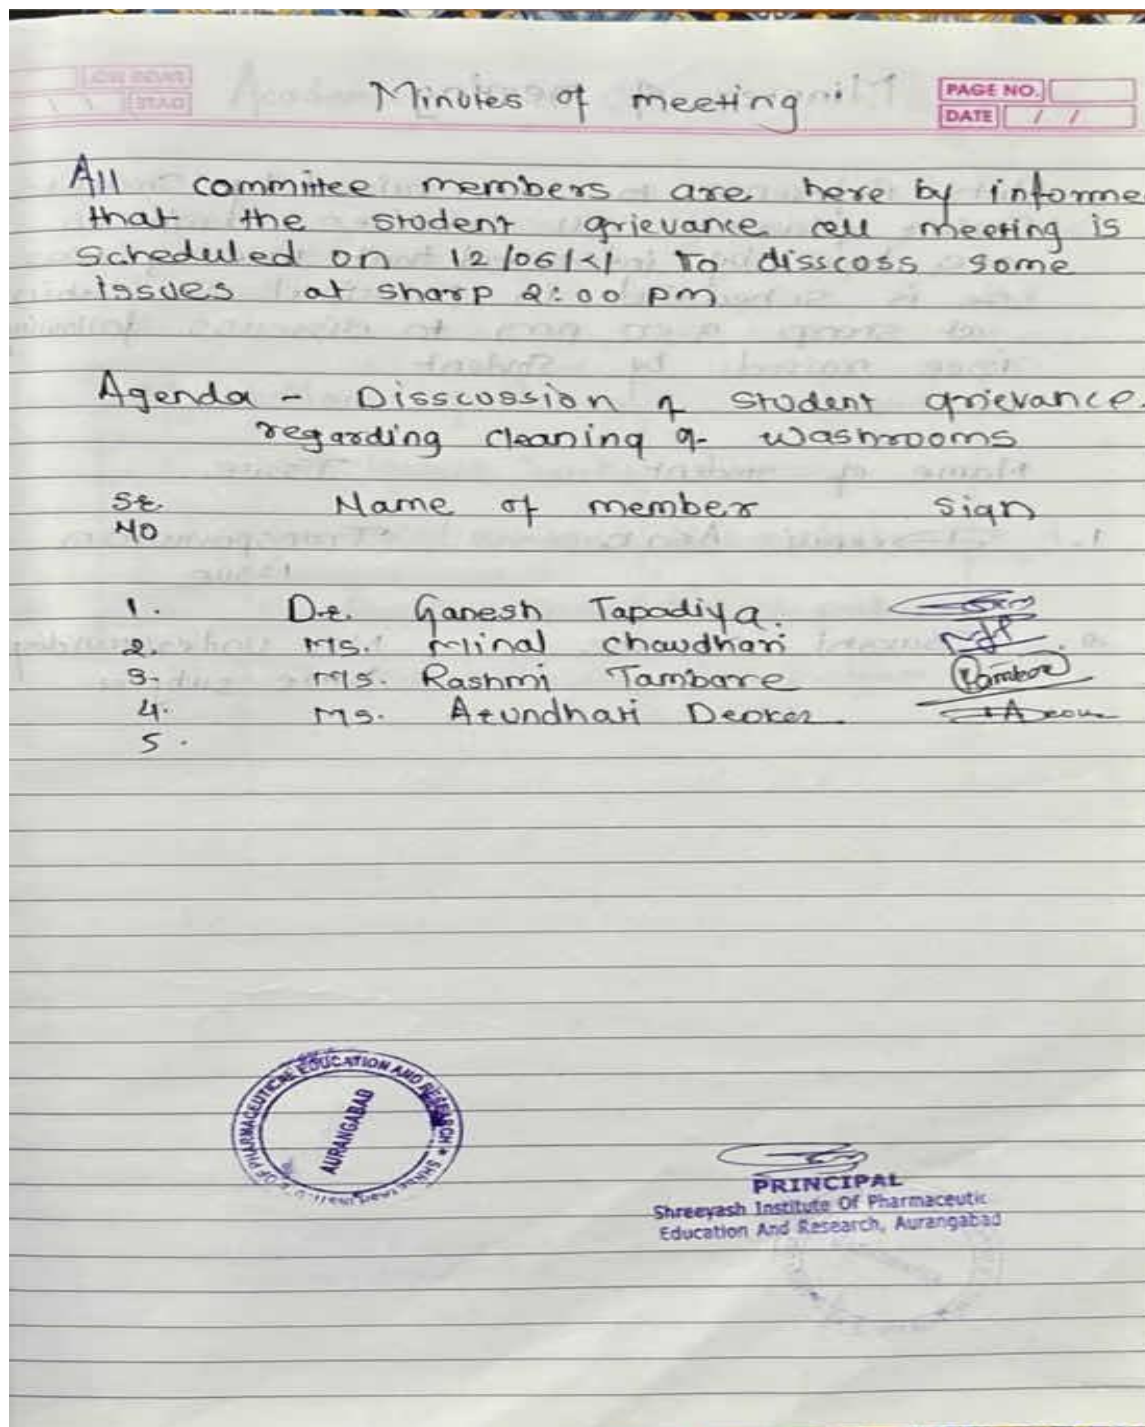 Minutes of meeting
PAGE NO.
DATE / /
All committee members are here by informe
that the student grievance cell meeting is
scheduled on 12/06/21 to disscoss some
issues at sharp 2:00 pm
Agenda - Disscussion of student grievance.
regarding cleaning of washrooms
Sr. Name of member Sign
NO
1. Dr. Ganesh Tapadiya.
2. Ms. Minal Chaudhari
3. Ms. Rashmi Tambare
4. Ms. Arundhati Deoker.
5.
OF PHARMACEUTICAL EDUCATION AND RESEARCH
AURANGABAD
PRINCIPAL
Shreeyash Institute Of Pharmaceutic
Education And Research, Aurangabad